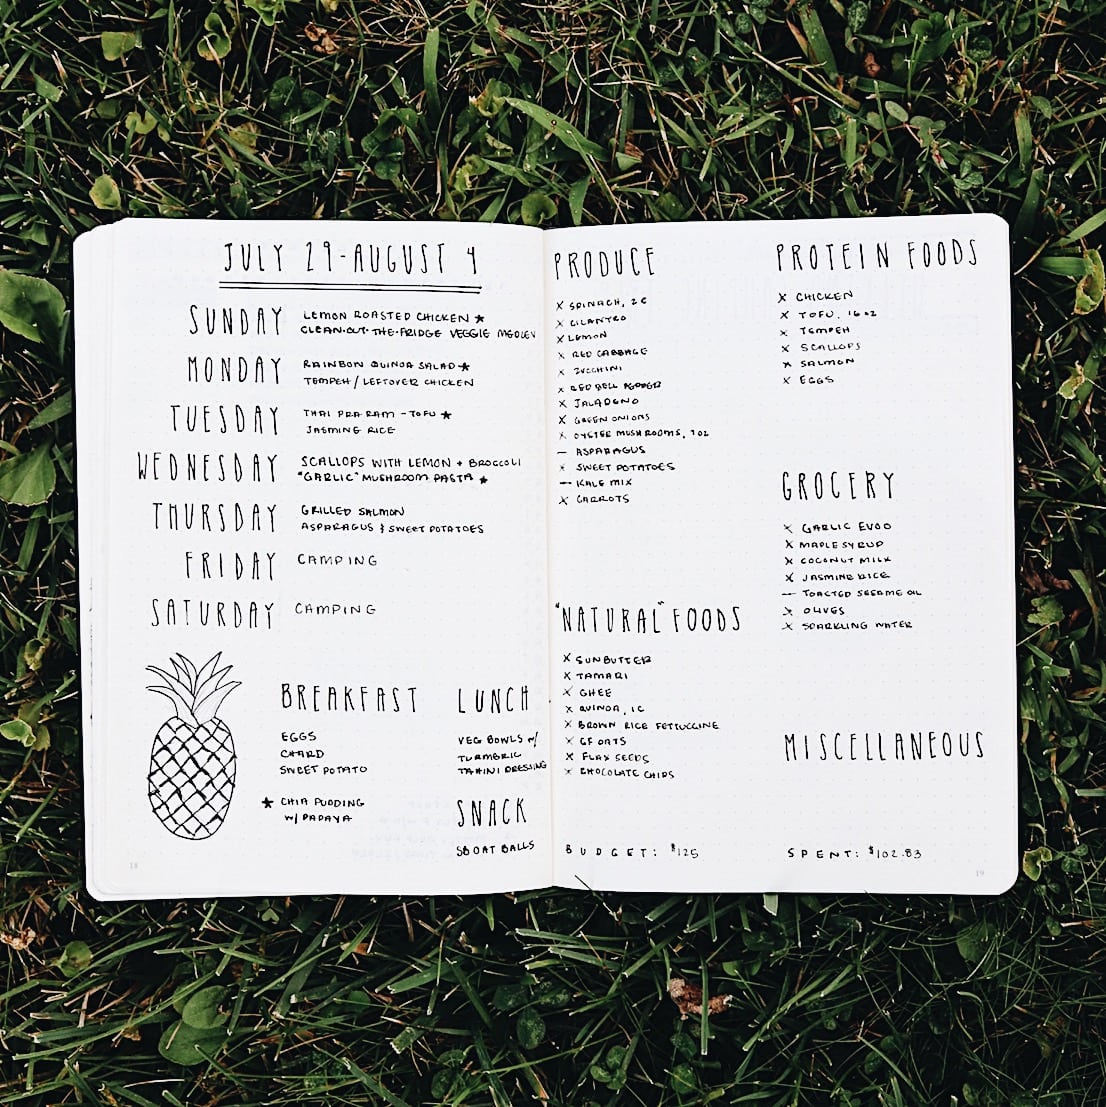 JULY 29-AUGUST 4
SUNDAY
LEMON ROASTED CHICKEN ★
CLEAN-OUT-THE-FRIDGE VEGGIE MEDLEY
MONDAY
RAINBOW QUINOA SALAD ★
TEMPEH / LEFTOVER CHICKEN
TUESDAY
THAI PRA RAM - TOFU ★
JASMINE RICE
WEDNESDAY
SCALLOPS WITH LEMON + BROCCOLI
"GARLIC" MUSHROOM PASTA ★
THURSDAY
GRILLED SALMON
ASPARAGUS & SWEET POTATOES
FRIDAY
CAMPING
SATURDAY
CAMPING
BREAKFAST
EGGS
CHARD
SWEET POTATO
★ CHIA PUDDING
W/ PAPAYA
LUNCH
VEG BOWLS W/
TURMERIC
TAHINI DRESSING
SNACK
SBOAT BALLS
18
PRODUCE
X SPINACH, 2C
X CILANTRO
X LEMON
X RED CABBAGE
X ZUCCHINI
X RED BELL PEPPER
X JALAPENO
X GREEN ONIONS
X OYSTER MUSHROOMS, 7 OZ
— ASPARAGUS
X SWEET POTATOES
— KALE MIX
X CARROTS
"NATURAL" FOODS
X SUNBUTTER
X TAMARI
X GHEE
X QUINOA, 1C
X BROWN RICE FETTUCCINE
X GF OATS
X FLAX SEEDS
X CHOCOLATE CHIPS
BUDGET: $125
PROTEIN FOODS
X CHICKEN
X TOFU, 16 OZ
X TEMPEH
X SCALLOPS
X SALMON
X EGGS
GROCERY
X GARLIC EVOO
X MAPLE SYRUP
X COCONUT MILK
X JASMINE RICE
— TOASTED SESAME OIL
X OLIVES
X SPARKLING WATER
MISCELLANEOUS
SPENT: $102.83
19